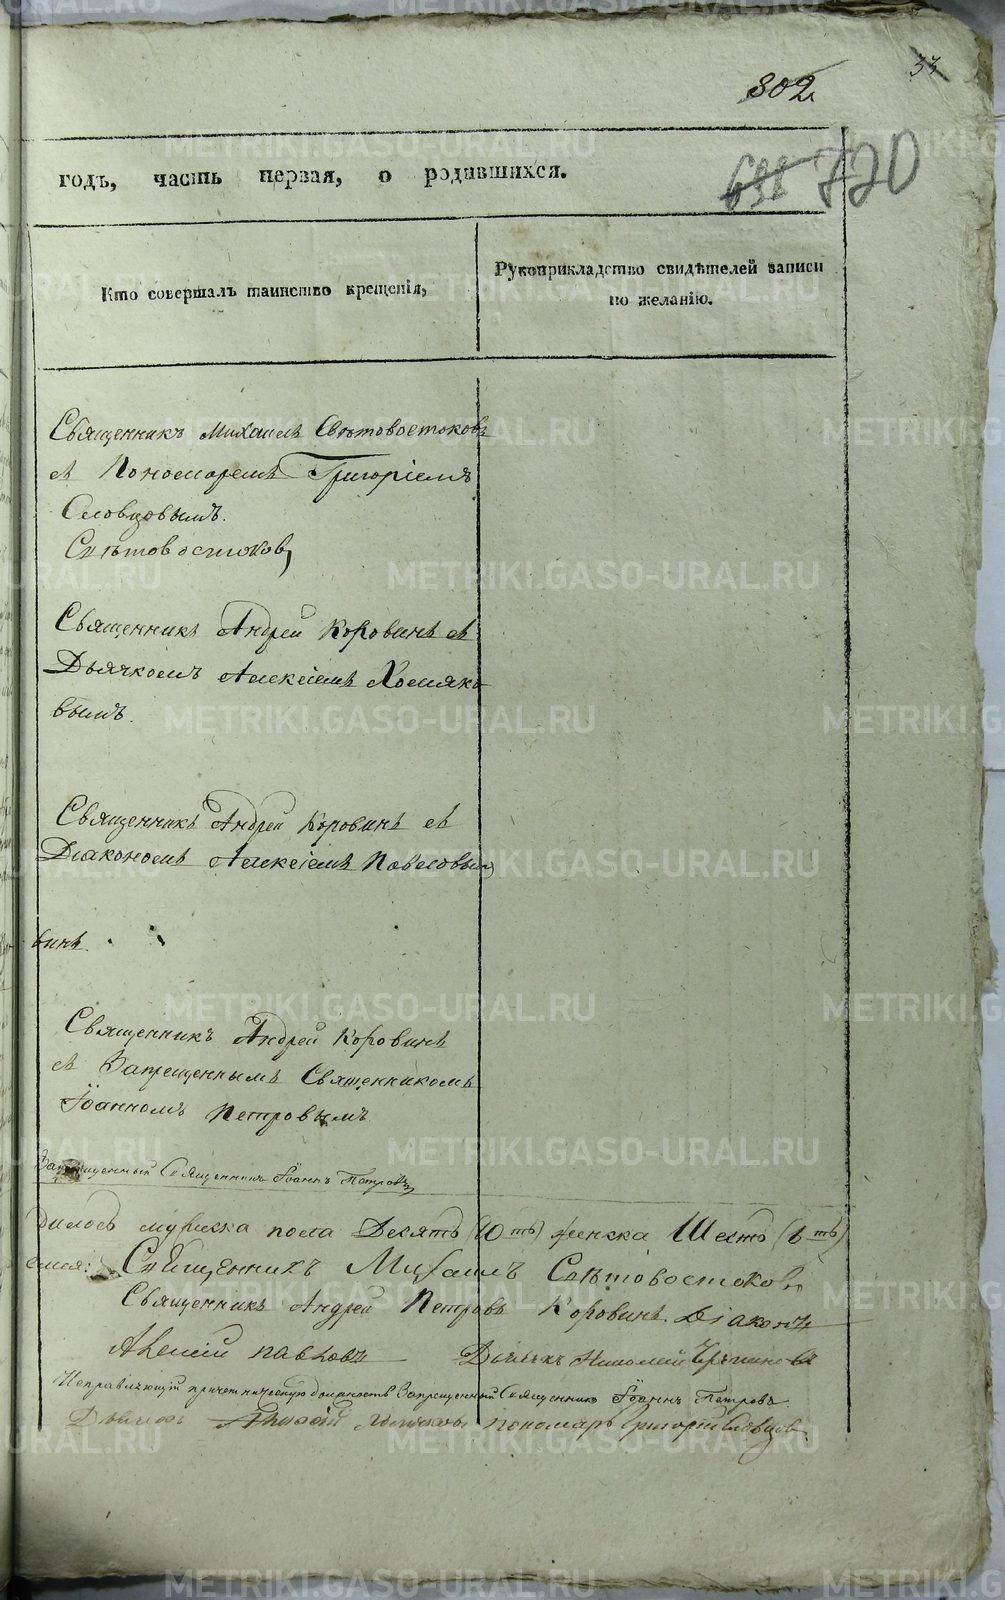 33
802
638 720
годъ, часть первая, о родившихся.
Кто совершалъ таинство крещенія,
Рукоприкладство свидѣтелей записи
по желанію.
Священникъ Михаилъ Свѣтовостоковъ
съ Пономаремъ Григоріемъ
Словцовымъ.
Свѣтовостоковъ
Священникъ Андрей Коровинъ съ
Дьячкомъ Алексіемъ Хомяко
вымъ.
Священникъ Андрей Коровинъ съ
Діакономъ Алексіемъ Павловым
винъ.
Священникъ Андрей Коровинъ
съ Запрещеннымъ Священникомъ
Іоанномъ Петровымъ
Запрещенный Священникъ Іоаннъ Петровъ
дилось мужеска пола Десять (10ть) женска Шесть (6ть)
Священникъ Михаилъ Свѣтовостоковъ
Священникъ Андрей Петровъ Коровинъ. Діаконъ
Алексій Павловъ Дьячекъ Николай
Исправляющій причетническую должность Запрещенный Священникъ Іоаннъ Петровъ
Дьячекъ Алексій Хомяковъ пономарь Григорій Словцовъ.
METRIKI.GASO-URAL.RU